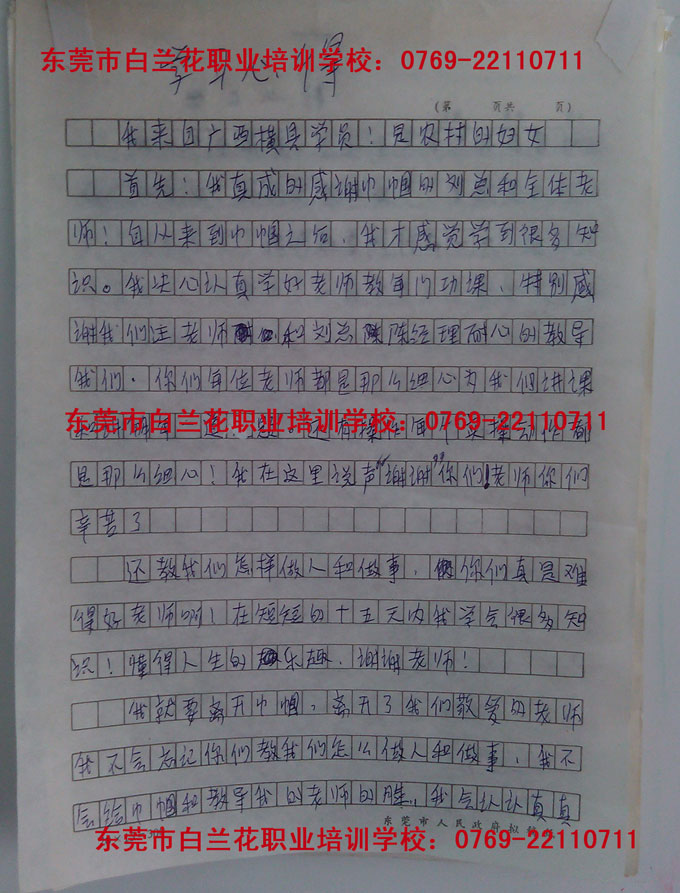 东莞市白兰花职业培训学校：0769-22110711
学习心得
(第 页共 页)
我来自广西横县学员！是农村的妇女
首先！我真成的感谢巾帼的刘总和全体老
师！自从来到巾帼之后、我才感觉学到很多知
识。我决心认真学好老师教每门功课、特别感
谢我们汪老师和刘总陈经理耐心的教导
我们．你们每位老师都是那么细心为我们讲课
东莞市白兰花职业培训学校：0769-22110711
是那么细心！我在这里说声“谢谢”你们！老师你们
辛苦了
还教我们怎样做人和做事．你们真是难
得好老师啊！在短短的十五天内我学会很多知
识！懂得人生的乐趣．谢谢老师！
我就要离开巾帼、离开了我们敬爱的老师
我不会忘记你们教我们怎么做人和做事、我不
会给巾帼和教导我的老师的，我会认认真真
东莞市人民政府
东莞市白兰花职业培训学校：0769-22110711